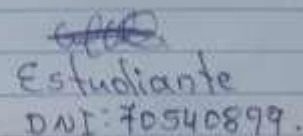 Estudiante
DNI: 70540899